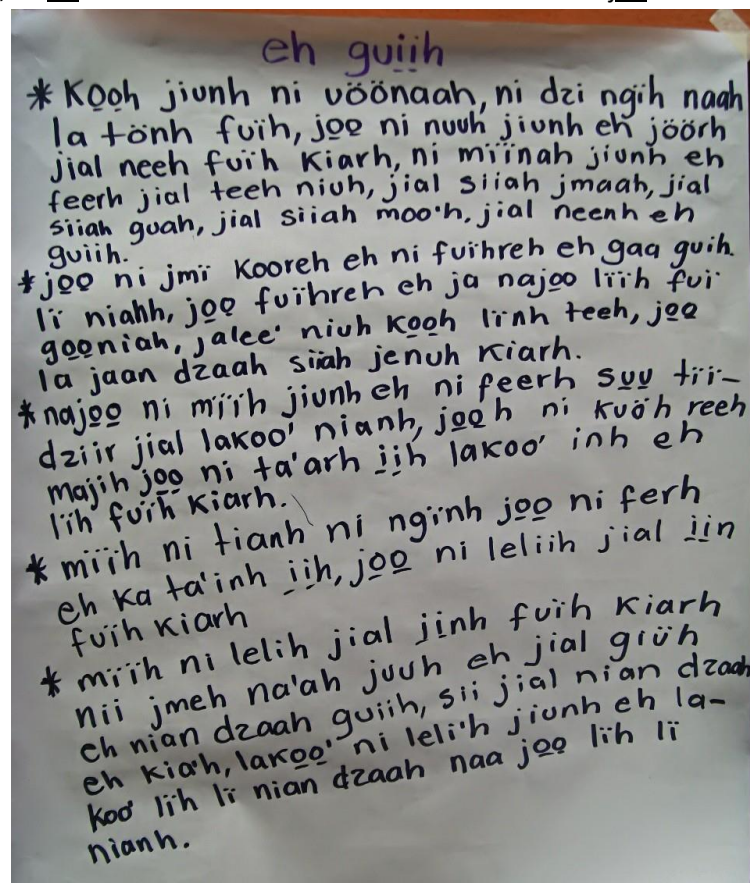 eh gui̲i̲h
* Ko̲o̲h jiunh ni vöönaah, ni dzi ngïh naah
la tönh fuïh, jo̲o̲ ni nuuh jiunh eh jöörh
jial neeh fuïh Kiarh, ni miïnah jiunh eh
feerh jial teeh niuh, jial siiah jmaah, jial
siiah guah, jial siiah moo'h, jial neenh eh
guiih.
* jo̲o̲ ni jmï Kooreh eh ni fuïhreh eh gaa guih
lï niahh, jo̲o̲ fuïhreh eh ja najo̲o̲ lïïh fuï
go̲o̲niah, jalee' niuh Ko̲o̲h lïnh teeh, jo̲o̲
la jaan dzaah siiah jenuh Kiarh.
* najo̲o̲ ni mïïh jiunh eh ni feerh su̲u̲ tïï-
dziir jial lakoo' nianh, jo̲o̲h ni kuöh reeh
majih jo̲o̲ ni ta'arh i̲i̲h lakoo' inh eh
lïh fuïh Kiarh.
* mïïh ni tianh ni ngïnh jo̲o̲ ni ferh
eh Ka ta'inh i̲i̲h, jo̲o̲ ni leliih jial i̲i̲n
fuïh Kiarh
* mïïh ni lelih jial ji̲nh fuïh Kiarh
nii jmeh na'ah juuh eh jial giüh
eh nian dzaah guiih, sii jial nian dzaah
eh Kia'h, lako̲o̲' ni leli'h jiunh eh la-
Koo' lïh lï nian dzaah naa jo̲o̲ lïh lï
nianh.